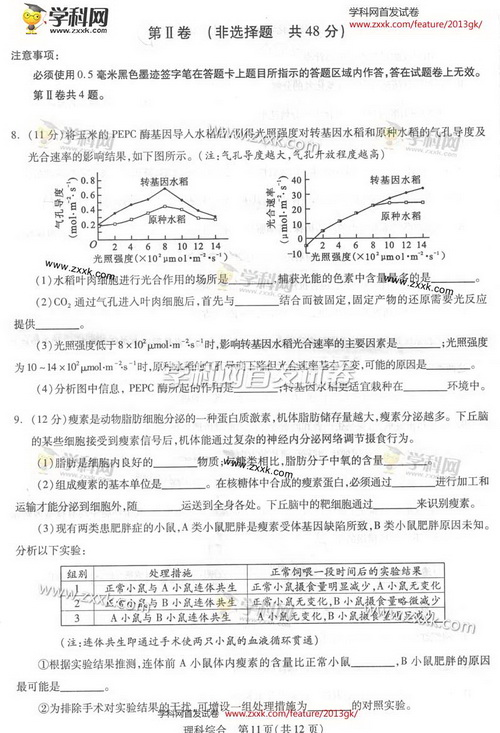 学科网
www.zxxk.com
学科网首发试卷
www.zxxk.com/feature/2013gk/
第Ⅱ卷 (非选择题 共48分)
注意事项:
必须使用0.5毫米黑色墨迹签字笔在答题卡上题目所指示的答题区域内作答,答在试题卷上无效。
第Ⅱ卷共4题。
8. (11分)将玉米的PEPC酶基因导入水稻后,测得光照强度对转基因水稻和原种水稻的气孔导度及
光合速率的影响结果,如下图所示。(注:气孔导度越大,气孔开放程度越高)
气孔导度 (mol·m⁻²·s⁻¹)
0.8
0.6
0.4
0.2
O
转基因水稻
原种水稻
2 4 6 8 10 12 14
光照强度(×10²μmol·m⁻²·s⁻¹)
光合速率 (μmol·m⁻²·s⁻¹)
40
30
20
10
0
-10
转基因水稻
原种水稻
2 4 6 8 10 12 14
光照强度(×10²μmol·m⁻²·s⁻¹)
(1)水稻叶肉细胞进行光合作用的场所是______,捕获光能的色素中含量最多的是______。
(2)CO₂通过气孔进入叶肉细胞后,首先与______结合而被固定,固定产物的还原需要光反应
提供______。
(3)光照强度低于8×10²μmol·m⁻²·s⁻¹时,影响转基因水稻光合速率的主要因素是______;光照强度
为10~14×10²μmol·m⁻²·s⁻¹时,原种水稻的气孔导度下降但光合速率基本不变,可能的原因是______。
(4)分析图中信息,PEPC酶所起的作用是______;转基因水稻更适宜栽种在______环境中。
9. (12分)瘦素是动物脂肪细胞分泌的一种蛋白质激素,机体脂肪储存量越大,瘦素分泌越多。下丘脑
的某些细胞接受到瘦素信号后,机体能通过复杂的神经内分泌网络调节摄食行为。
(1)脂肪是细胞内良好的______物质;与糖类相比,脂肪分子中氧的含量______。
(2)组成瘦素的基本单位是______。在核糖体中合成的瘦素蛋白,必须通过______进行加工和
运输才能分泌到细胞外,随______运送到全身各处。下丘脑中的靶细胞通过______来识别瘦素。
(3)现有两类患肥胖症的小鼠,A类小鼠肥胖是瘦素受体基因缺陷所致,B类小鼠肥胖原因未知。
分析以下实验:
组别 处理措施 正常饲喂一段时间后的实验结果
1 正常小鼠与A小鼠连体共生 正常小鼠摄食量明显减少,A小鼠无变化
2 正常小鼠与B小鼠连体共生 正常小鼠无变化,B小鼠摄食量略微减少
3 A小鼠与B小鼠连体共生 A小鼠无变化,B小鼠摄食量明显减少
(注:连体共生即通过手术使两只小鼠的血液循环贯通)
①根据实验结果推测,连体前A小鼠体内瘦素的含量比正常小鼠______,B小鼠肥胖的原因
最可能是______。
②为排除手术对实验结果的干扰,可增设一组处理措施为______的对照实验。
学科网首发试卷
www.zxxk.com/feature/2013gk/
理科综合 第11页(共12页)